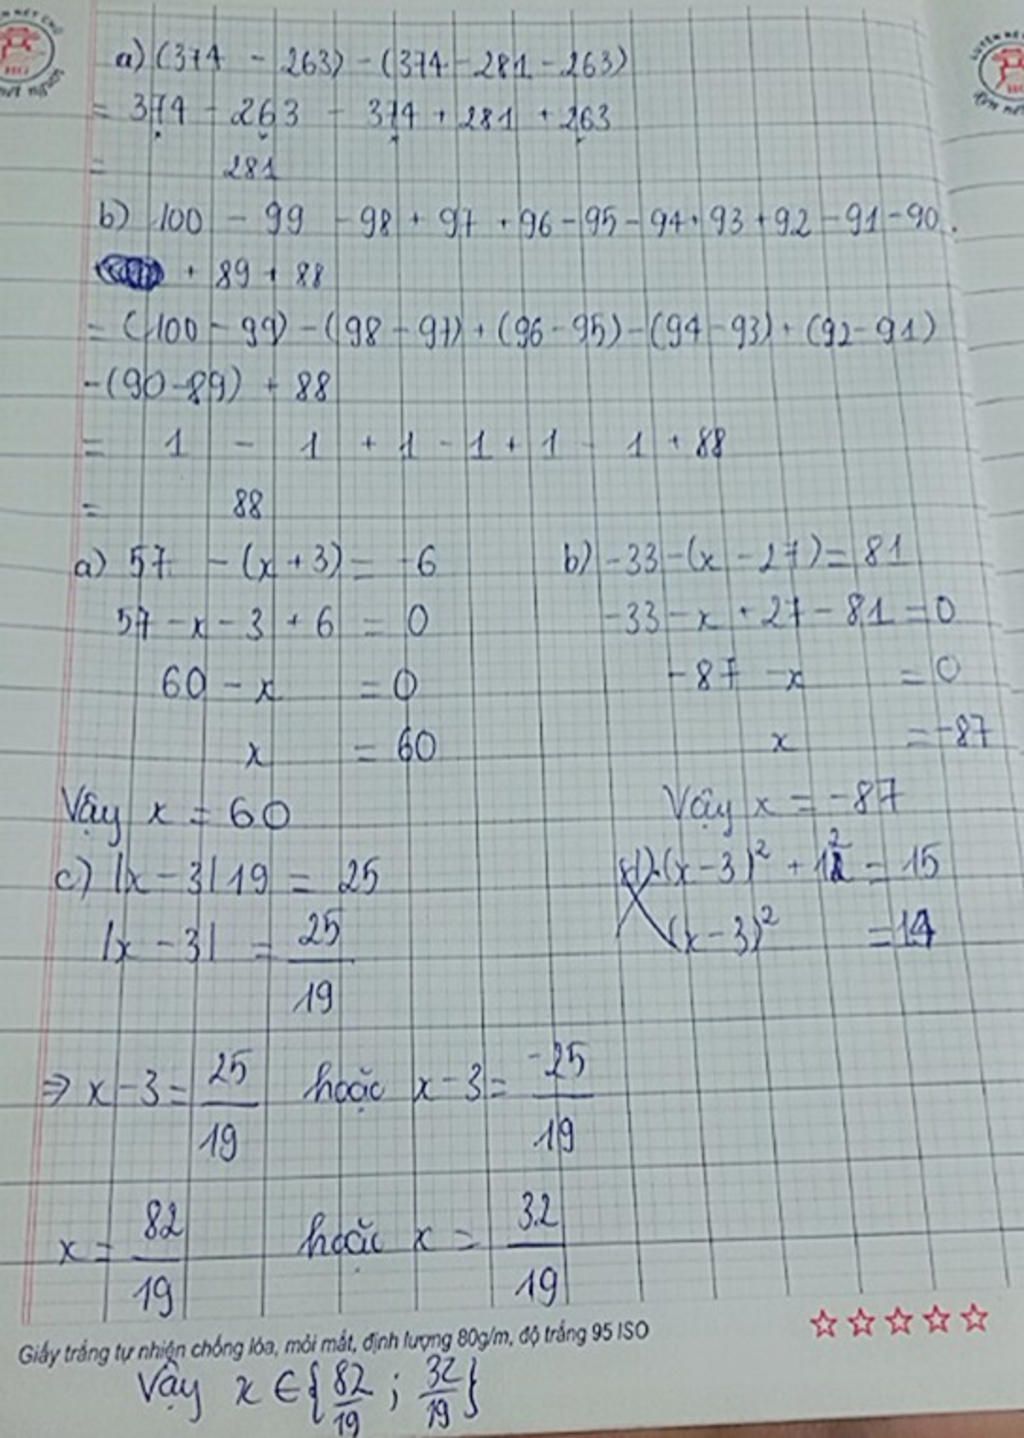 a) (374 - 263) - (374 - 281 - 263)
= 374 - 263 - 374 + 281 + 263
= 281
b) 100 - 99 - 98 + 97 + 96 - 95 - 94 + 93 + 92 - 91 - 90
+ 89 + 88
= (100 - 99) - (98 - 97) + (96 - 95) - (94 - 93) + (92 - 91)
- (90 - 89) + 88
= 1 - 1 + 1 - 1 + 1 - 1 + 88
= 88
a) 57 - (x + 3) = -6
57 - x - 3 + 6 = 0
60 - x = 0
x = 60
Vậy x = 60
b) -33 - (x - 27) = 81
-33 - x + 27 - 81 = 0
-87 - x = 0
x = -87
Vậy x = -87
c) |x - 3| 19 = 25
|x - 3| = 25/19
⇒ x - 3 = 25/19 hoặc x - 3 = -25/19
x = 82/19 hoặc x = 32/19
(x - 3)² + = 15
(x - 3)² =
Giấy trắng tự nhiên chống lóa, mỏi mắt, định lượng 80g/m, độ trắng 95 ISO
Vậy x ∈ {82/19 ; 32/19}